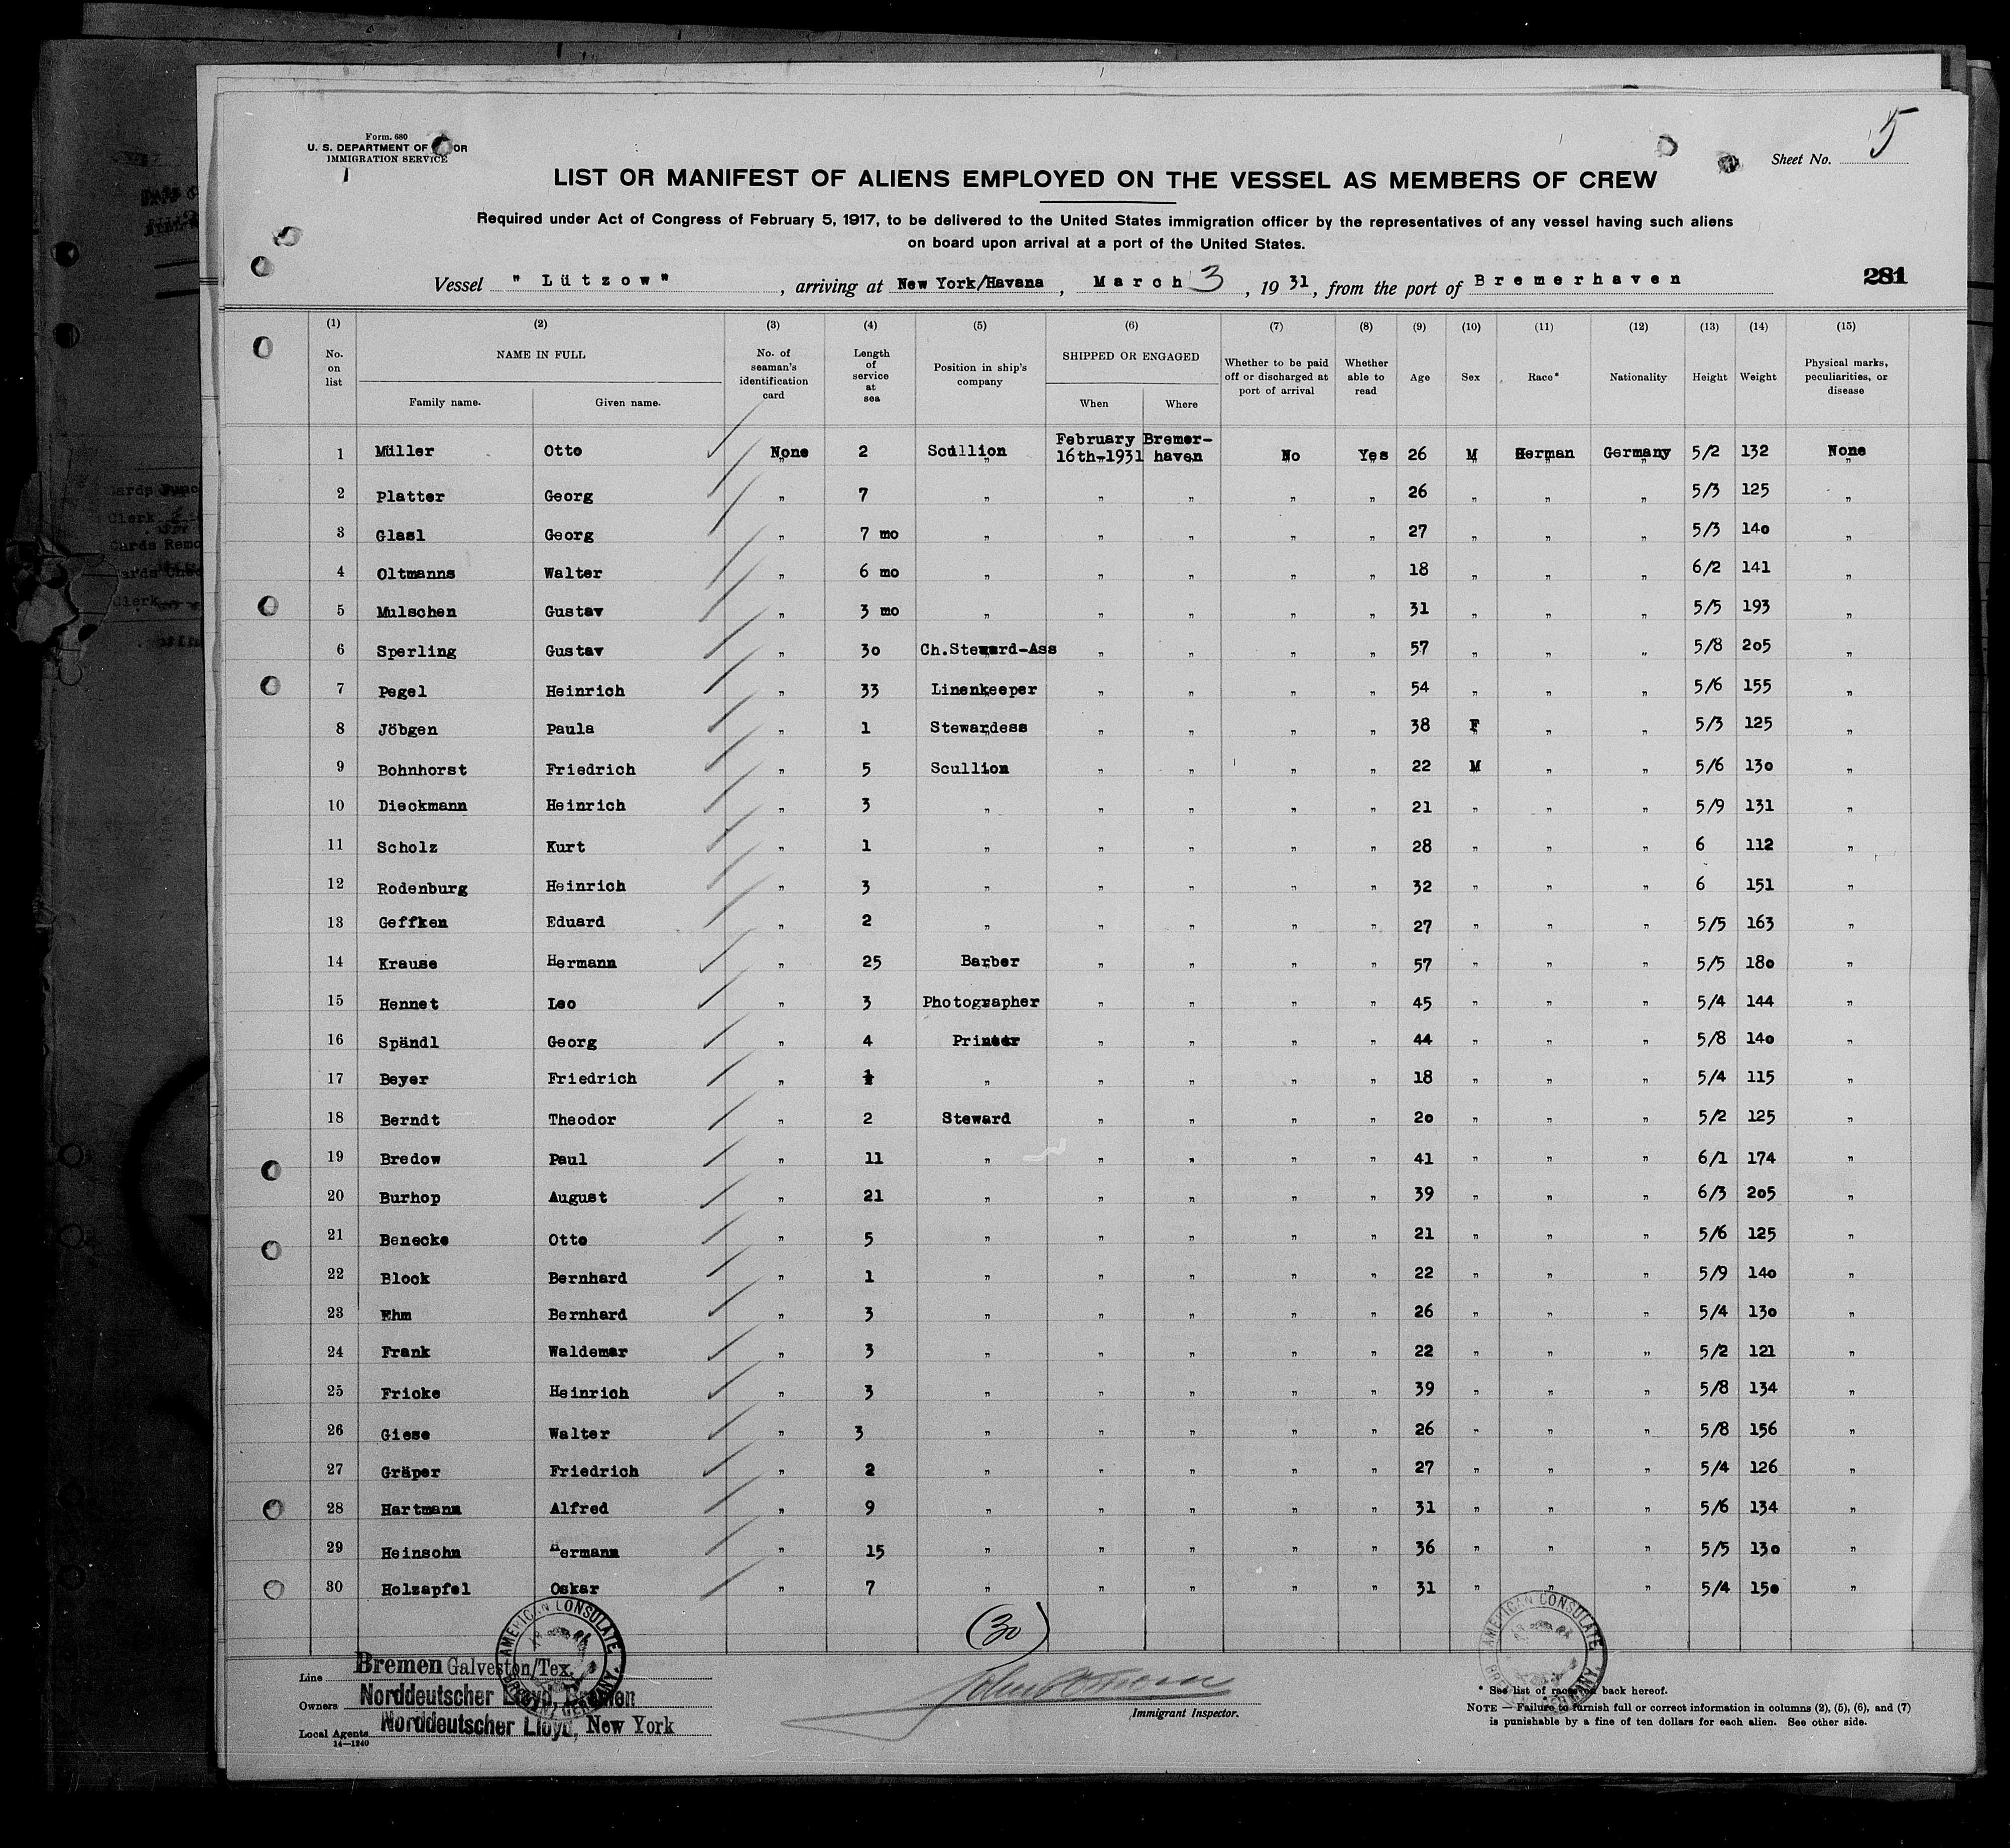 Form. 680
U. S. DEPARTMENT OF OR
IMMIGRATION SERVICE
Sheet No. 5
LIST OR MANIFEST OF ALIENS EMPLOYED ON THE VESSEL AS MEMBERS OF CREW
Required under Act of Congress of February 5, 1917, to be delivered to the United States immigration officer by the representatives of any vessel having such aliens
on board upon arrival at a port of the United States.
Vessel "Lützow", arriving at New York/Havana, March 3, 1931, from the port of Bremerhaven 281
(1) (2) (3) (4) (5) (6) (7) (8) (9) (10) (11) (12) (13) (14) (15)
No. on list NAME IN FULL Family name. Given name. No. of seaman's identification card Length of service at sea Position in ship's company SHIPPED OR ENGAGED When Where Whether to be paid off or discharged at port of arrival Whether able to read Age Sex Race* Nationality Height Weight Physical marks, peculiarities, or disease
1 Müller Otto None 2 Scullion February 16th-1931 Bremer-haven No Yes 26 M German Germany 5/2 132 None
2 Platter Georg " 7 " " " " " 26 " " " 5/3 125 "
3 Glasl Georg " 7 mo " " " " " 27 " " " 5/3 140 "
4 Oltmanns Walter " 6 mo " " " " " 18 " " " 6/2 141 "
5 Mulschen Gustav " 3 mo " " " " " 31 " " " 5/5 193 "
6 Sperling Gustav " 30 Ch.Steward-Ass " " " " 57 " " " 5/8 205 "
7 Pegel Heinrich " 33 Linenkeeper " " " " 54 " " " 5/6 155 "
8 Jöbgen Paula " 1 Stewardess " " " " 38 F " " 5/3 125 "
9 Bohnhorst Friedrich " 5 Scullion " " " " 22 M " " 5/6 130 "
10 Dieckmann Heinrich " 3 " " " " " 21 " " " 5/9 131 "
11 Scholz Kurt " 1 " " " " " 28 " " " 6 112 "
12 Rodenburg Heinrich " 3 " " " " " 32 " " " 6 151 "
13 Geffken Eduard " 2 " " " " " 27 " " " 5/5 163 "
14 Krause Hermann " 25 Barber " " " " 57 " " " 5/5 180 "
15 Hennet Leo " 3 Photographer " " " " 45 " " " 5/4 144 "
16 Spändl Georg " 4 Printer " " " " 44 " " " 5/8 140 "
17 Beyer Friedrich " " " " " " 18 " " " 5/4 115 "
18 Berndt Theodor " 2 Steward " " " " 20 " " " 5/2 125 "
19 Bredow Paul " 11 " " " " " 41 " " " 6/1 174 "
20 Burhop August " 21 " " " " " 39 " " " 6/3 205 "
21 Benecke Otto " 5 " " " " " 21 " " " 5/6 125 "
22 Block Bernhard " 1 " " " " " 22 " " " 5/9 140 "
23 Ehm Bernhard " 3 " " " " " 26 " " " 5/4 130 "
24 Frank Waldemar " 3 " " " " " 22 " " " 5/2 121 "
25 Fricke Heinrich " 3 " " " " " 39 " " " 5/8 134 "
26 Giese Walter " 3 " " " " " 26 " " " 5/8 156 "
27 Gräper Friedrich " 2 " " " " " 27 " " " 5/4 126 "
28 Hartmann Alfred " 9 " " " " " 31 " " " 5/6 134 "
29 Heinsohn Hermann " 15 " " " " " 36 " " " 5/5 130 "
30 Holzapfel Oskar " 7 " " " " " 31 " " " 5/4 150 "
(30)
AMERICAN CONSULATE
AMERICAN CONSULATE
Line Bremen Galveston/Tex.
Owners Norddeutscher Lloyd, Bremen
Local Agents Norddeutscher Lloyd, New York
14—1240
Immigrant Inspector.
* See list of races on back hereof.
NOTE — Failure to furnish full or correct information in columns (2), (5), (6), and (7)
is punishable by a fine of ten dollars for each alien. See other side.